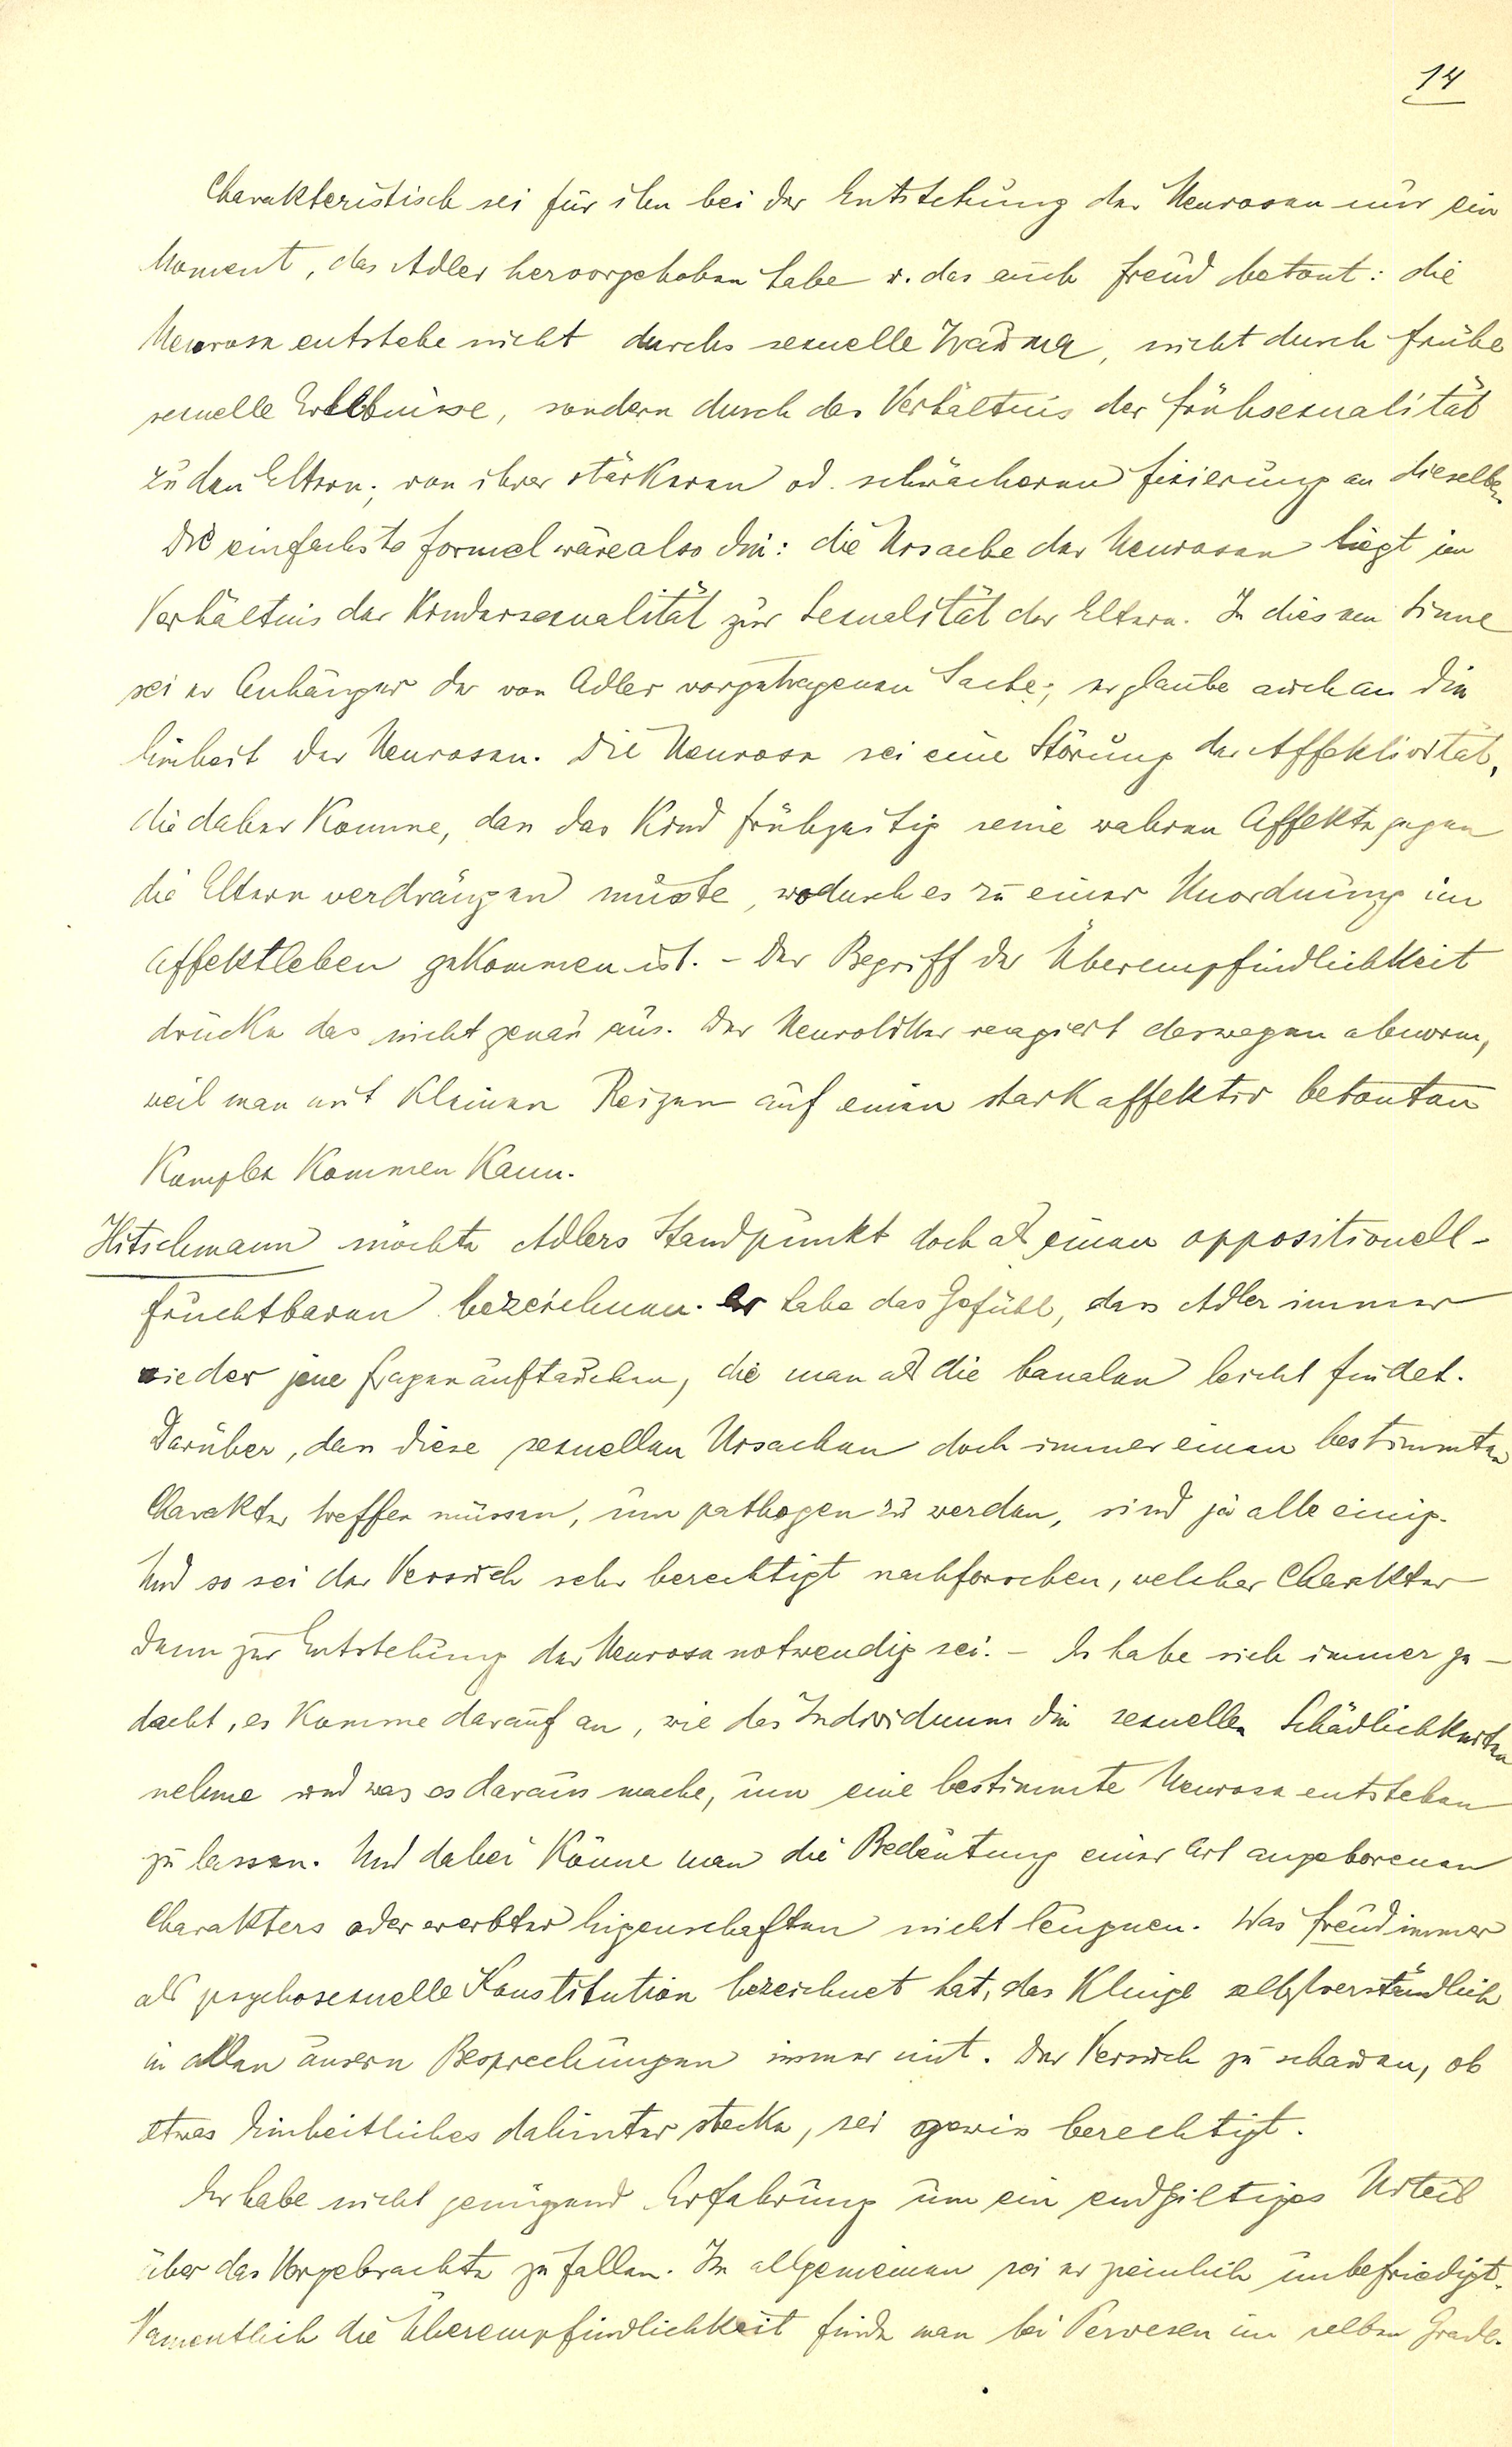 14
Charakteristisch sei für ihn bei der Entstehung der Neurosen nur ein
Moment, das Adler hervorgehoben habe u. das auch Freud betont: die
Neurose entstehe nicht durchs sexuelle Trauma, nicht durch frühe
sexuelle Erlebnisse, sondern durch das Verhältnis der Frühsexualität
zu den Eltern; von ihrer stärkeren od. schwächeren Fixierung an dieselben
Die einfachste Formel wäre also die: die Ursache der Neurosen liegt im
Verhältnis der Kindersexualität zur Sexualität der Eltern. In diesem Sinne
sei er Anhänger der von Adler vorgetragenen Sache; er glaube auch an die
Einheit der Neurosen. Die Neurose sei eine Störung der Affektivität,
die daher komme, dass das Kind frühzeitig seine wahren Affekte gegen
die Eltern verdrängen müsste, wodurch es zu einer Unordnung im
Affektleben gekommen ist. – Der Begriff der Überempfindlichkeit
drücke das nicht genau aus. Der Neurotiker reagiert deswegen abnorm,
weil man mit kleinen Reizen auf einen stark affektiv betonten
Komplex kommen kann.
Hitschmann möchte Adlers Standpunkt doch als einen oppositionell-
fruchtbaren bezeichnen. Er habe das Gefühl, dass Adler immer
wieder jene Fragen auftauchen, die man als die banalen leicht findet.
Darüber, dass diese sexuellen Ursachen doch immer einen bestimmten
Charakter treffen müssen, um pathogen zu werden, sind ja alle einig.
Und so sei der Versuch sehr berechtigt nachforschen, welcher Charakter
denn zur Entstehung der Neurose notwendig sei. – Er habe sich immer ge-
dacht, es komme darauf an, wie das Individuum die sexuellen Schädlichkeiten
nehme und was es daraus mache, um eine bestimmte Neurose entstehen
zu lassen. Und dabei könne man die Bedeutung einer Art angeborenen
Charakters oder ererbter Eigenschaften nicht leugnen. Was Freud immer
als psychosexuelle Konstitution bezeichnet hat, das klinge selbstverständlich
in allen unsern Besprechungen immer mit. Der Versuch zu schauen, ob
etwas Einheitliches dahinter stecke, sei gewiss berechtigt.
Er habe nicht genügend Erfahrung um ein endgiltiges Urteil
über das Vorgebrachte zu fällen. Im allgemeinen sei er ziemlich unbefriedigt.
Namentlich die Überempfindlichkeit finde man bei Perversen im selben Grade.